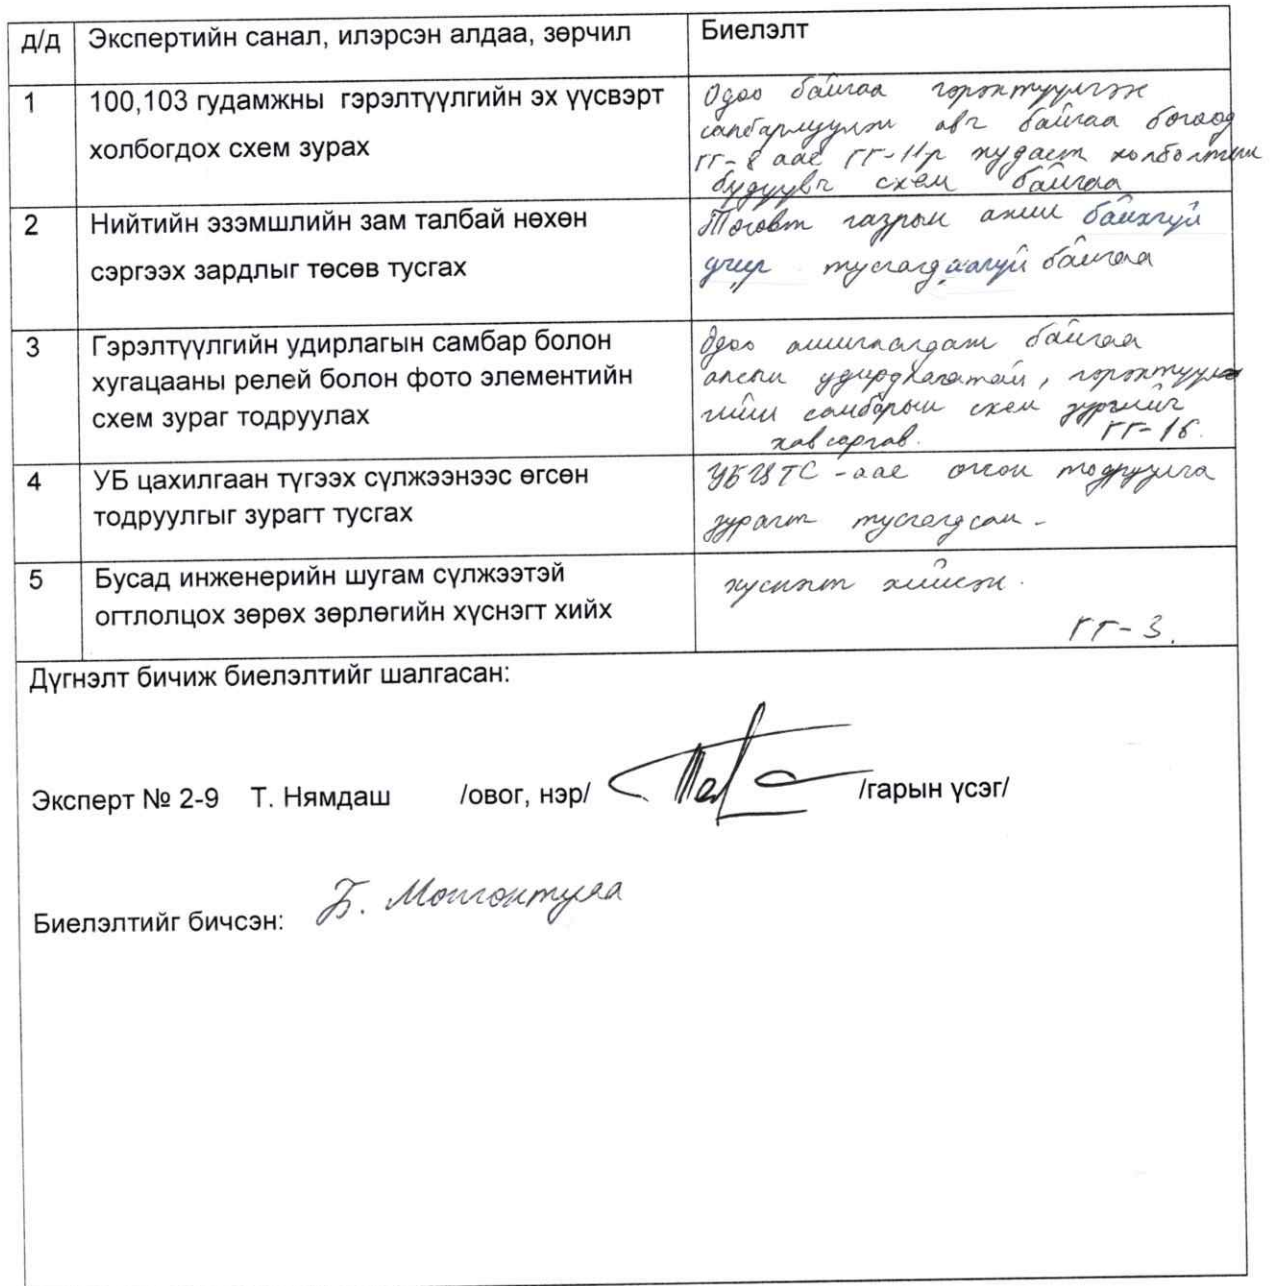 д/д Экспертийн санал, илэрсэн алдаа, зөрчил Биелэлт
1 100,103 гудамжны гэрэлтүүлгийн эх үүсвэрт
холбогдох схем зурах
Одоо байгаа гэрэлтүүлгээс
салбарлуулж авч байгаа бөгөөд
ГГ-8 аас ГГ-11р худаст холболтын
бүдүүвч схем байгаа
2 Нийтийн эзэмшлийн зам талбай нөхөн
сэргээх зардлыг төсөв тусгах
Тогтовт газрын ажил байхгүй
учир тусгагдаагүй байгаа
3 Гэрэлтүүлгийн удирлагын самбар болон
хугацааны релей болон фото элементийн
схем зураг тодруулах
Одоо ашиглагдаж байгаа
алсын удирдлагатай, гэрэлтүүл
гийн самбарын схем зургийг
хавсаргав. ГГ-16.
4 УБ цахилгаан түгээх сүлжээнээс өгсөн
тодруулгыг зурагт тусгах
УБЦТС-аас өгсөн тодруулга
зурагт тусгагдсан.
5 Бусад инженерийн шугам сүлжээтэй
огтлолцох зөрөх зөрлөгийн хүснэгт хийх
хүснэгт хийсэн.
ГГ-3.
Дүгнэлт бичиж биелэлтийг шалгасан:
Эксперт № 2-9 Т. Нямдаш /овог, нэр/ /гарын үсэг/
Биелэлтийг бичсэн: Б. Мөнгөнтуяа